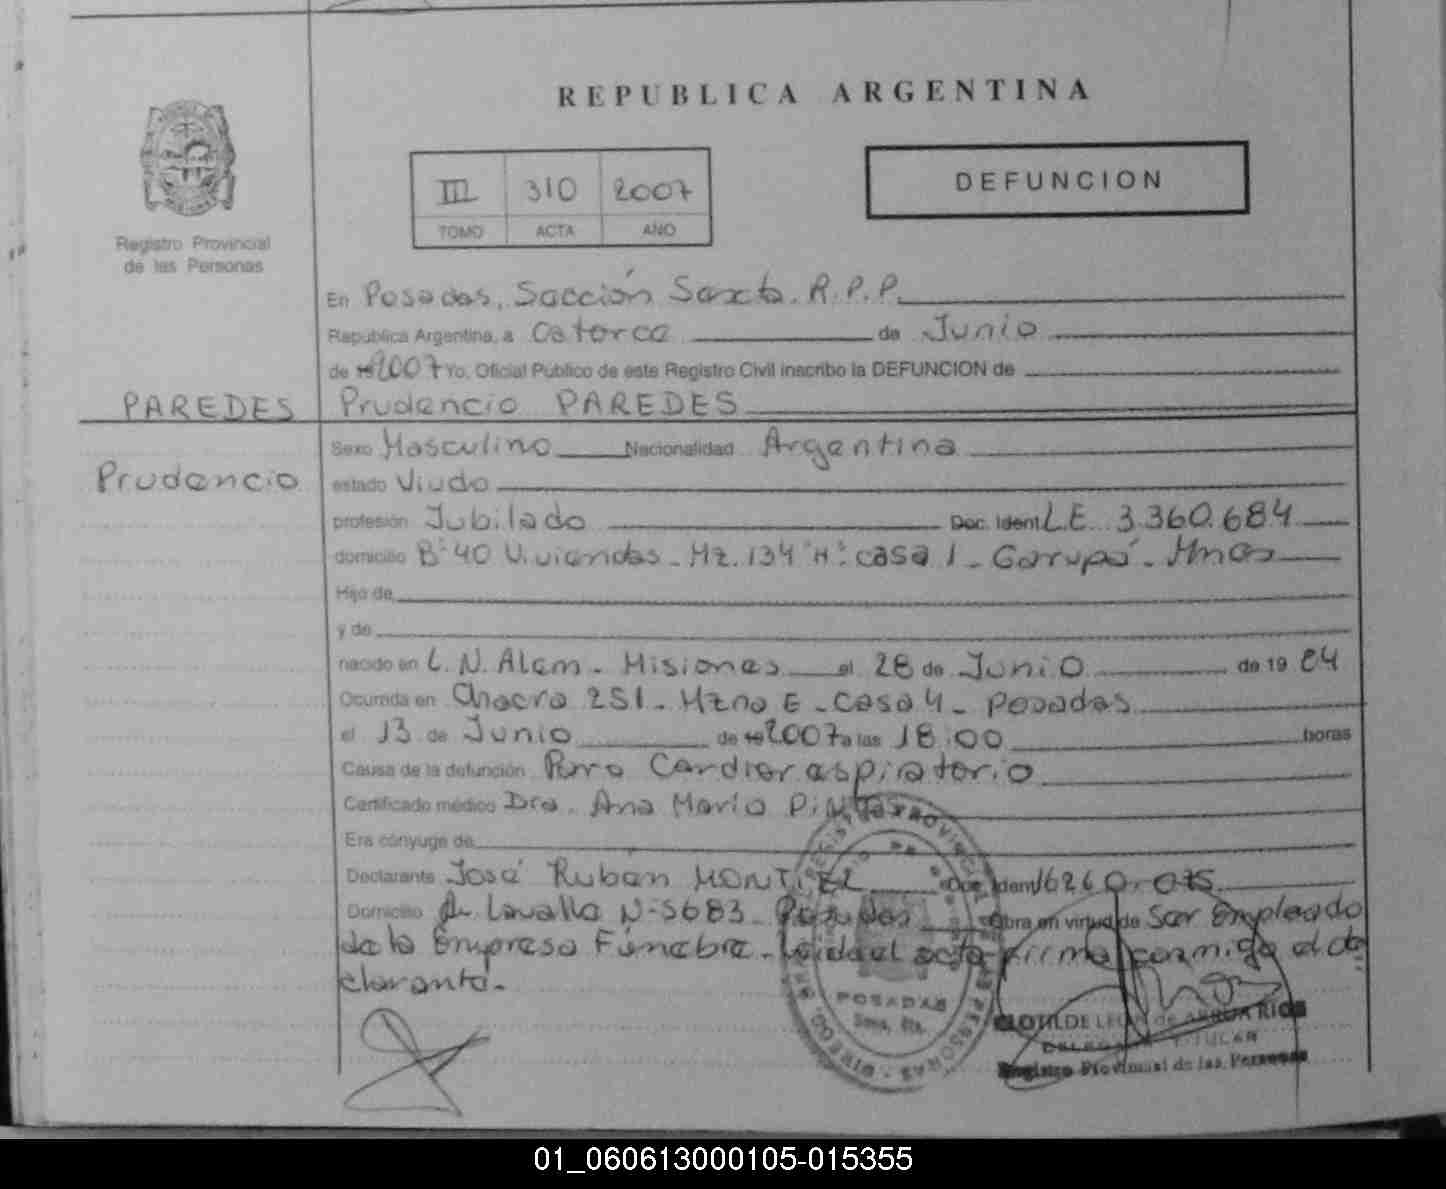 REPUBLICA ARGENTINA
III 310 2007
TOMO ACTA AÑO
DEFUNCION
Registro Provincial
de las Personas
En Posadas, Sección Sexta. R.P.P.
República Argentina, a Catorce de Junio
de 19 2007 Yo, Oficial Público de este Registro Civil inscribo la DEFUNCION de
PAREDES
Prudencio PAREDES
Prudencio
Sexo Masculino Nacionalidad Argentina
estado Viudo
profesión Jubilado Doc. Ident L.E. 3.360.684
domicilio Bº 40 Viviendas - Mz. 134 "H" casa 1 - Garupá - Mnes
Hijo de
y de
nacido en L.N. Alem - Misiones el 28 de Junio de 19 24
Ocurrida en Chacra 251 - Mzna E - Casa 4 - Posadas
el 13 de Junio de 19 2007 a las 18:00 horas
Causa de la defunción Paro Cardiorespiratorio
Certificado médico Dra. Ana María
Era cónyuge de
Declarante José Rubén MONTIEL Doc. Ident 16260.075
Domicilio Av. Lavalle Nº 5683 - Posadas Obra en virtud de Ser Empleado
de la Empresa Fúnebre - Leída el acta firma conmigo el de
clarante.
REGISTRO PROVINCIAL DE LAS PERSONAS
POSADAS
Secc. 6ta.
CLOTILDE LEON de ARRUA RIOS
DELEGADA TITULAR
Registro Provincial de las Personas
01_060613000105-015355